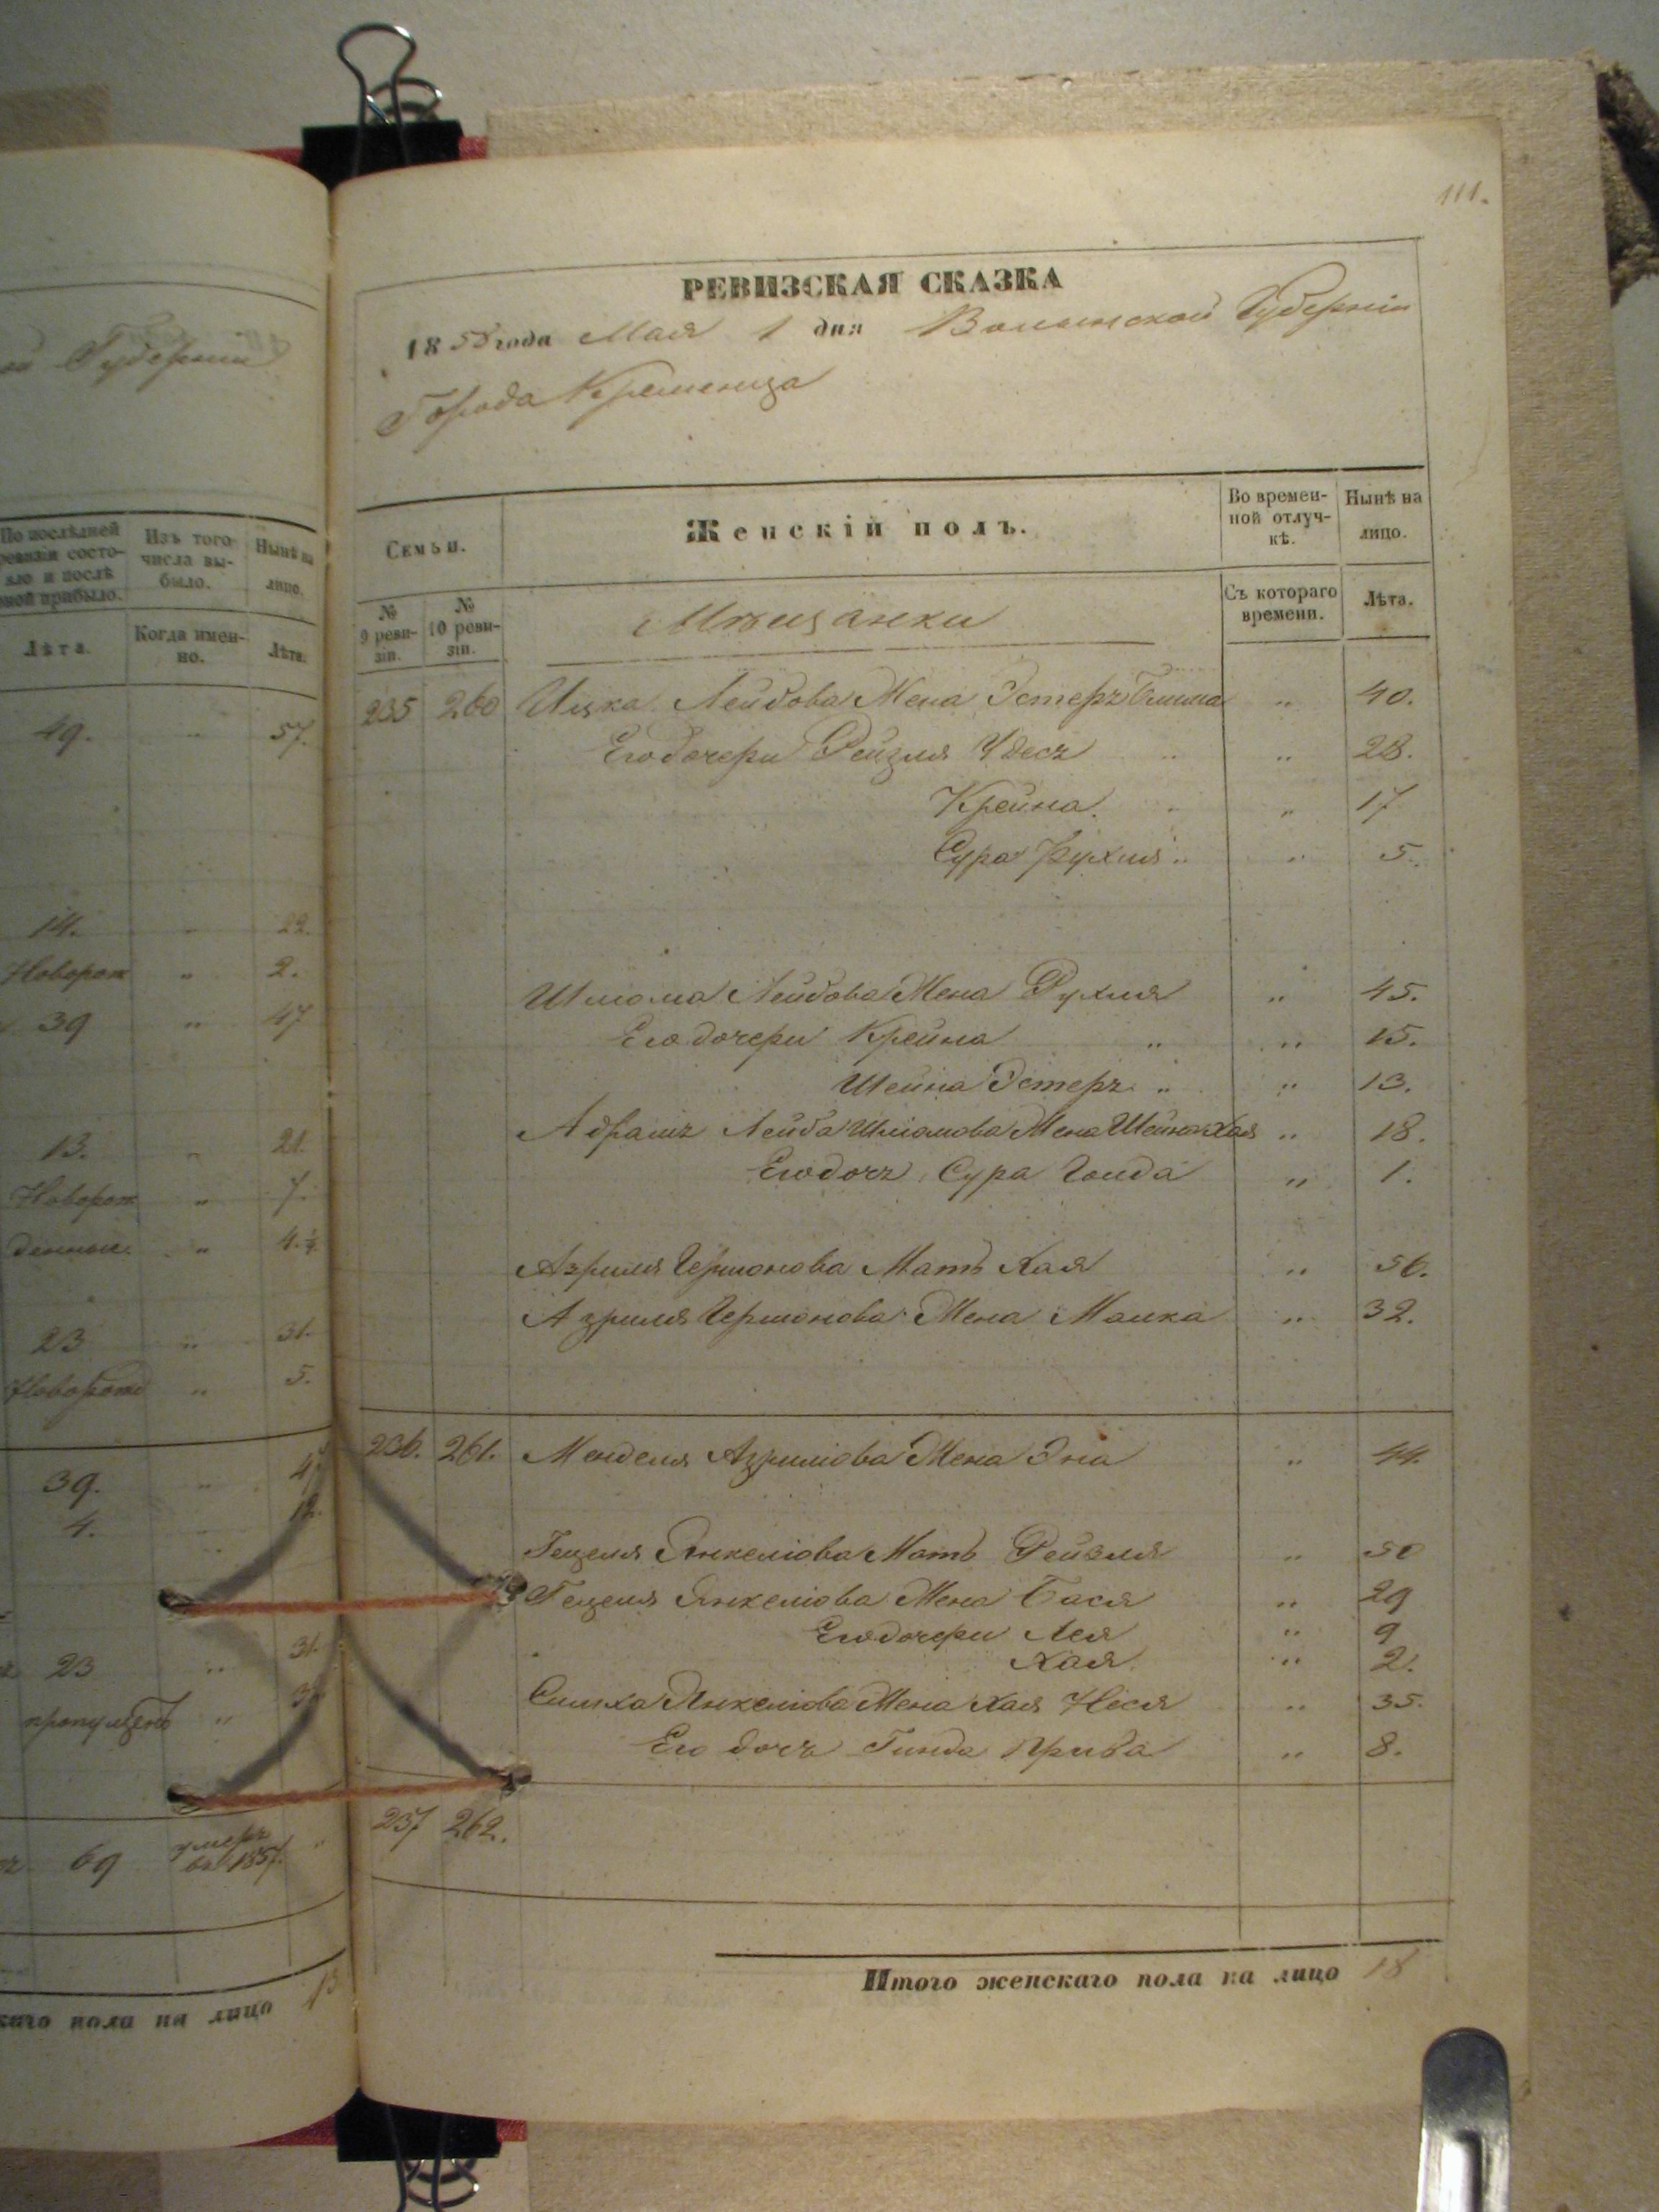 111.
РЕВИЗСКАЯ СКАЗКА
1858 года Мая 1 дня Волынской Губерніи
Города Кременца
Семьи.
Женскій полъ.
Во времен-
ной отлуч-
кѣ.
Нынѣ на
лицо.
№
9 реви-
зіи.
№
10 реви-
зіи.
Мѣщанки
Съ котораго
времени.
Лѣта.
235 260 Ицка Лейбова Жена Эстеръ " 40.
Его дочери Рейзля Удесъ " 28.
Крейна " 17
Сура Рухля " 5.
Шлома Лейбова Жена Рухля " 45.
Его дочери Крейна " 15.
Шейна Эстеръ " 13.
Абрамъ Лейба Шліомова Жена Шейна Хая " 18.
Его дочь Сура Голда " 1.
Азриля Гершонова Мать Хая " 56.
Азриля Гершонова Жена Малка " 32.
236. 261. Менделя Азриліова Жена Эна " 44.
Гецеля Янкеліова Мать Рейзля " 50
Гецеля Янкеліова Жена Бася " 29
Его дочери Лея " 9
Хая " 2.
Симха Янкеліова Жена Хая Неся " 35.
Его дочь Гинда Прива " 8.
237 262.
Итого женскаго пола на лицо 18
Губерніи
По послѣдней
ревизіи состо-
яло и послѣ
оной прибыло.
Изъ того
числа вы-
было.
Нынѣ на
лицо.
Лѣта.
Когда имен-
но.
Лѣта.
49. " 57.
14. " 22.
Новорож " 2.
39 " 47
13. " 21.
Новорож " 7.
денные. " 4.
23 " 31.
Новорожд " 5.
39. "
4. " 12.
23 " 31.
пропущенъ "
69 умеръ
въ 1857. "
пола на лицо 13